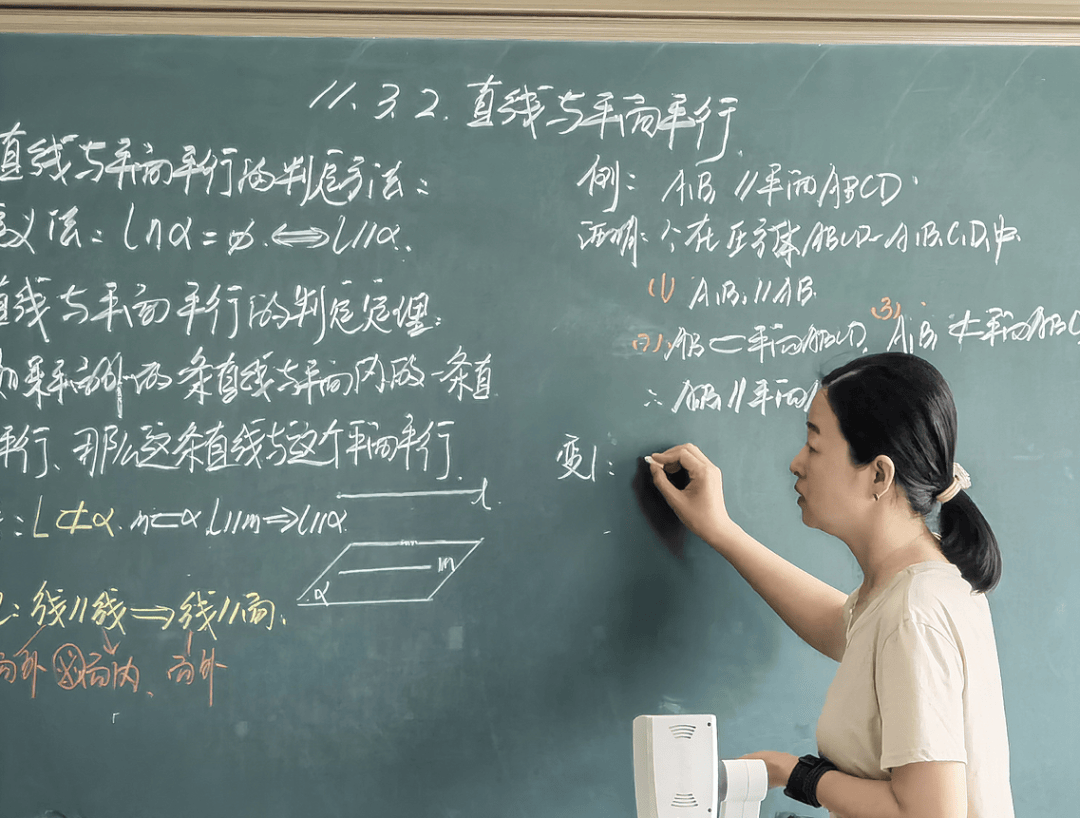 11.3.2. 直线与平面平行.
直线与平面平行的判定方法:
义法: l∩α=φ. ⟺ l//α.
直线与平面平行的判定定理:
如果平面外的一条直线与平面内的一条直
平行、那么这条直线与这个平面平行.
: l⊄α. m⊂α. l//m⇒l//α.
l
m
α
: 线//线⇒线//面.
面外 面内、面外
例: A₁B₁//平面ABCD.
证明: 在正方体ABCD-A₁B₁C₁D₁中
(1) A₁B₁//AB.
(2) AB⊂平面ABCD. (3) A₁B₁⊄平面ABC
∴ A₁B₁//平面
变1: